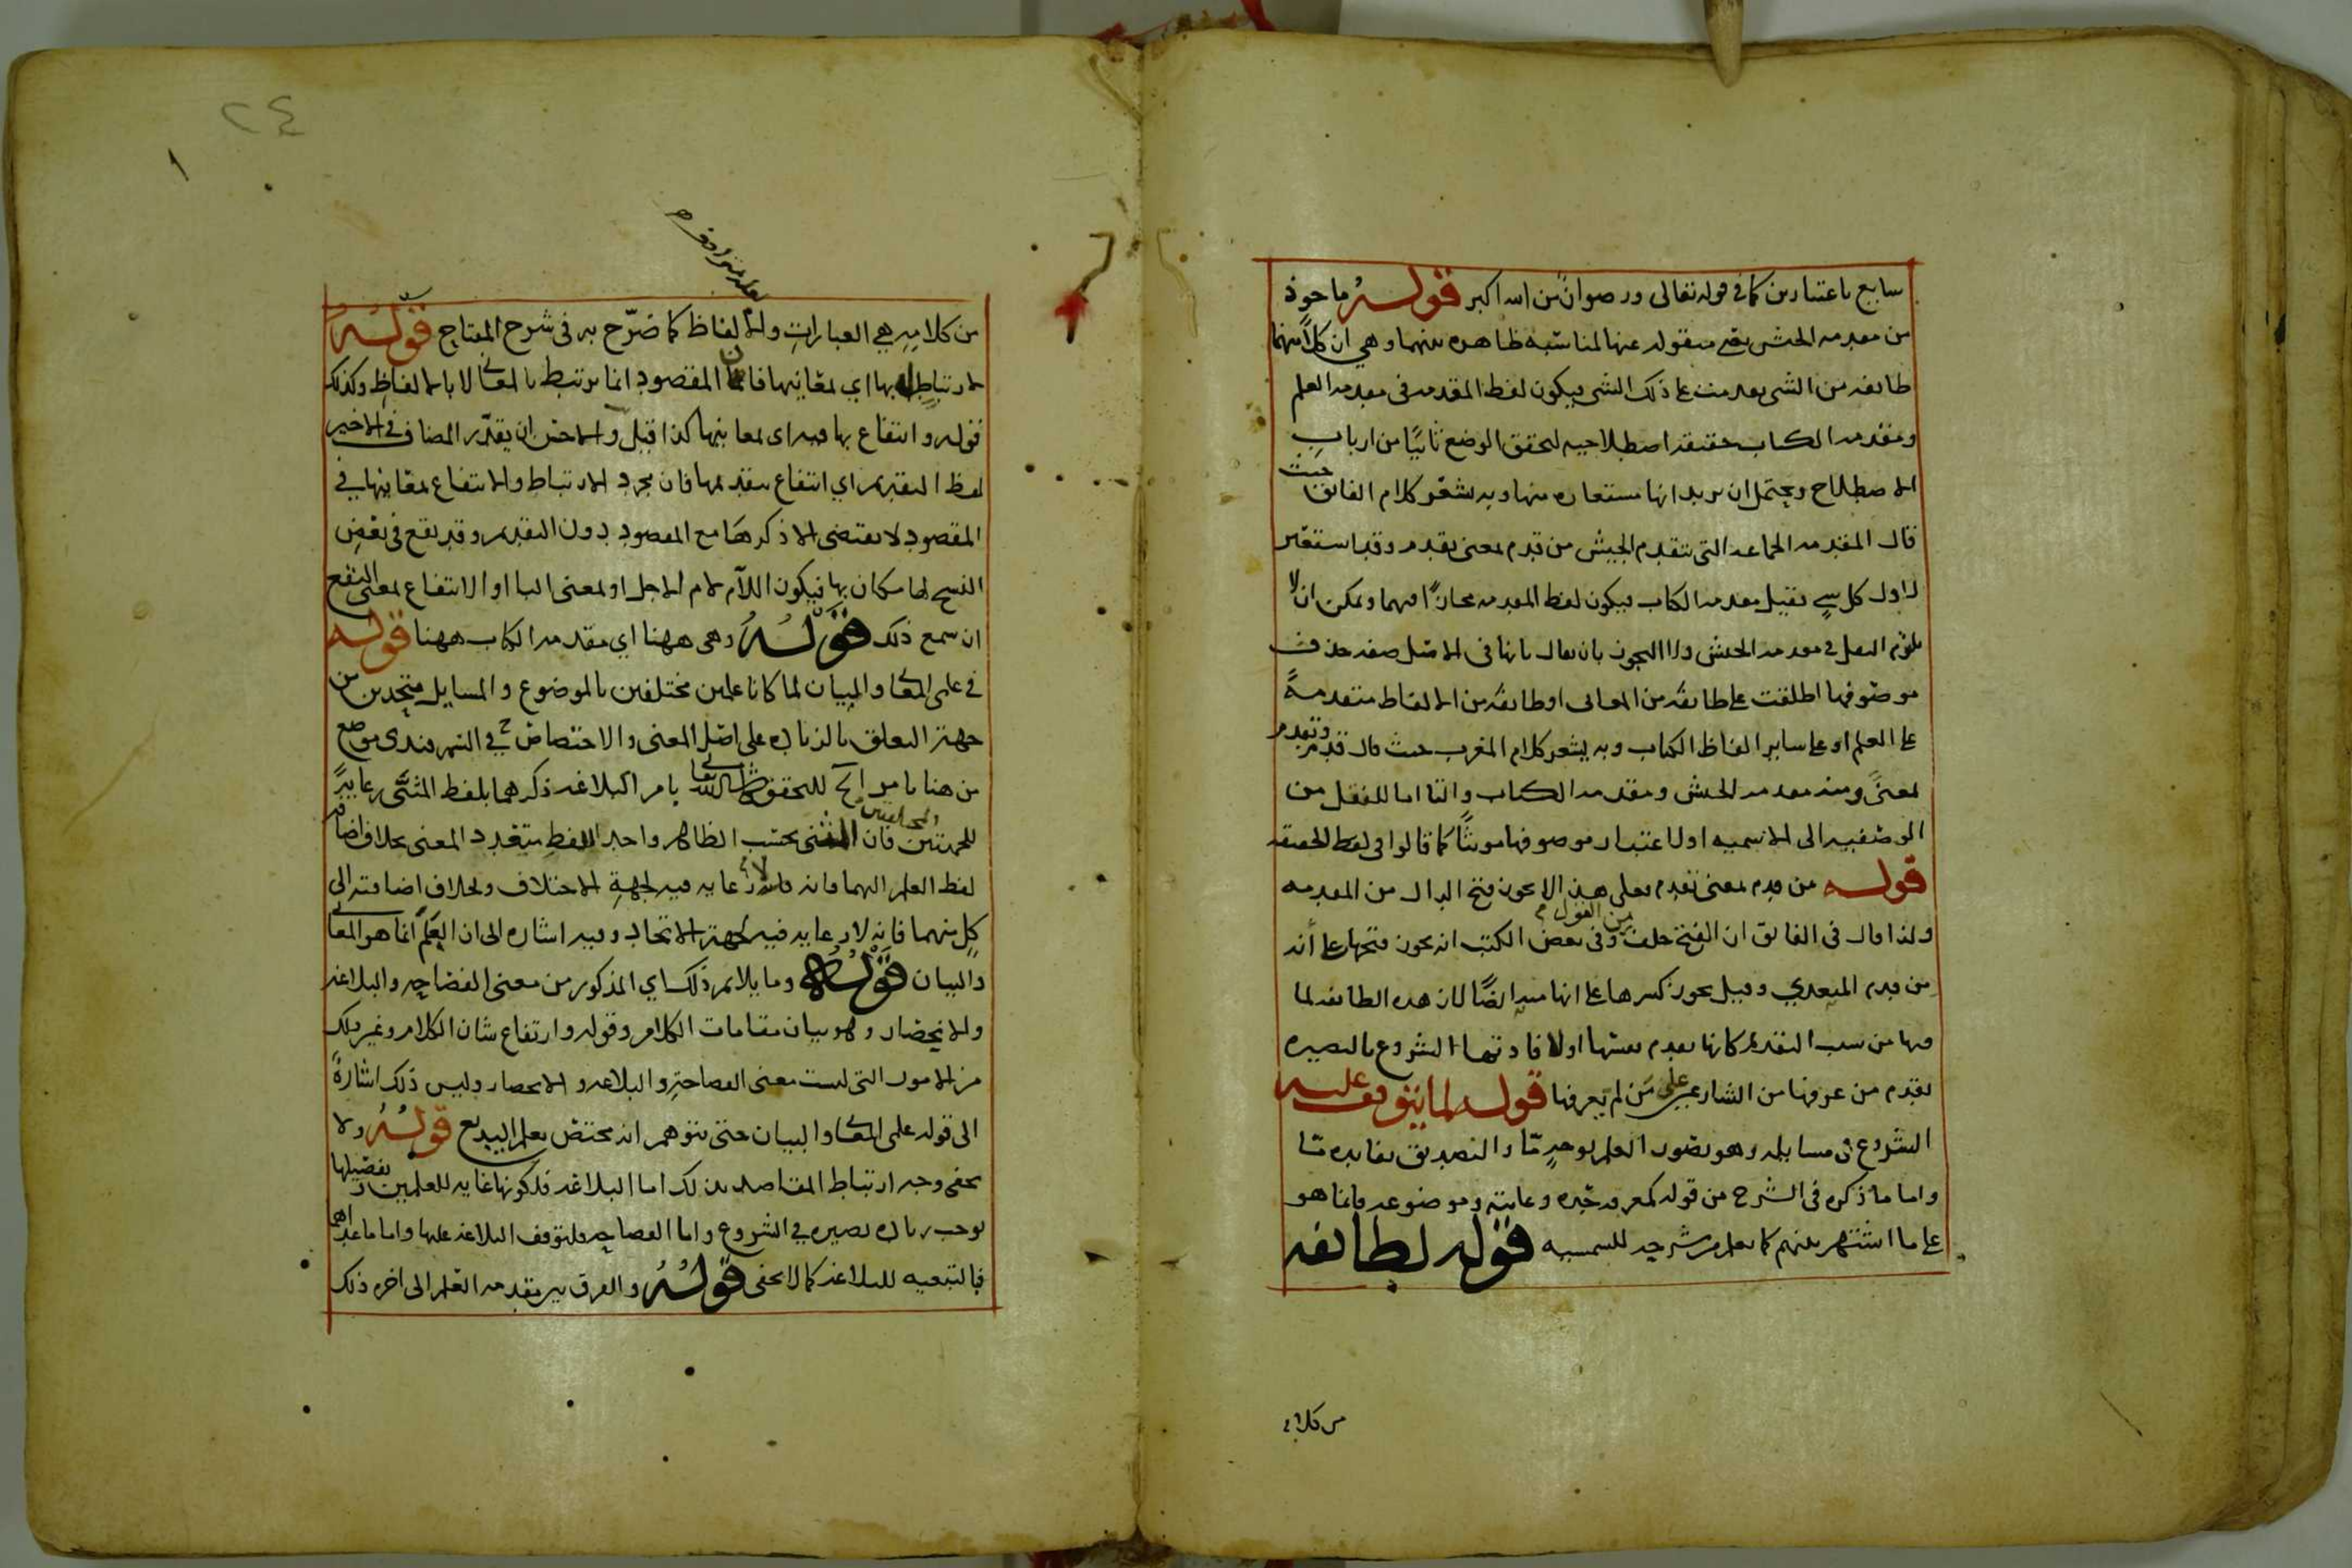 سايع باعتبارين كما في قوله تعالى ورضوان من الله اكبر قوله ماخوذ
من مقدمة الجيش يعني منقوله عنها لمناسبة ظاهره بينهما وهي ان كلا منهما
طائفه من الشي تقدمت على ذلك الشي فيكون لفظ المقدمه في مقدمه العلم
ومقدمه الكتاب حقيقه اصطلاحيه لتحقق الوضع ثانيا من ارباب
الاصطلاح ويحتمل ان يريد انها مستعاره منها وبه يشعر كلام الفائق حيث
قال المقدمه الجماعه التي تتقدم الجيش من قدم بمعنى تقدم وقد استعير
لاول كل شي فقيل مقدمه الكتاب فيكون لفظ المقدمه مجازا فيهما ويمكن ان لا
يلتزم النقل في مقدمه الجيش ولا التجوز بان يقال بانها في الاصل صفه حذف
موصوفها اطلقت على طائفه من المعاني او طائفه من الالفاظ متقدمة
على العلم او على ساير الفاظ الكتاب وبه يشعر كلام المغرب حيث قال قدم وتقدم
بمعنى ومنه مقدمه الجيش ومقدمه الكتاب والتا اما للنقل من
الوصفيه الى الاسميه او لاعتبار موصوفها مونثا كما قالوا في لفظ الحقيقه
قوله من قدم بمعنى تقدم فعلى هذا لا يجوز فتح الدال من المقدمه
ولذا قال في الفائق ان الفتح خلف من القول وفي بعض الكتب انه يجوز فتحها على أنه
من قدم المتعدي وقيل يجوز كسرها على انها منه ايضا لان هذه الطائفه لما
فيها من سبب التقديم كانها تقدم نفسها او لافادتها الشروع بالبصيره
تقدم من عرفها من الشارعين على من لم يعرفها قوله لما يتوقف عليه
الشروع في مسايله وهو تصور العلم بوجه ما والتصديق بفايده ما
واما ما ذكره في الشرح من قوله كمعرفه حده وغايته وموضوعه فانما هو
على ما اشتهر بينهم كما يعلم من شرحه للشمسيه قوله لطائفه
من كلامه
٢٤
من كلامه هي العبارات والالفاظ كما صرح به في شرح المفتاح قوله
لارتباط له بها اي بمعانيها فان المقصود انما يرتبط بالمعاني لا بالالفاظ وكذلك
قوله وانتفاع بها فيه اى بمعانيها كذا قيل والاحسن ان يقدر المضاف في الاخير
لفظ التقديم اي انتفاع بتقديمها فان مجرد الارتباط والانتفاع بمعانيها في
المقصود لا يقتضى الا ذكرها مع المقصود دون التقديم وقد يقع في بعض
النسخ لها مكان بها فيكون اللام لام الاجل او بمعنى البا او الانتفاع بمعنى النفع
ان سمع ذلك قوله وهى ههنا اي مقدمه الكتاب ههنا قوله
في علمى المعاني والبيان لما كانا علمين مختلفين بالموضوع والمسايل متحدين من
جهة التعلق بالزياده على اصل المعنى والاختصاص
بامر البلاغه ذكرهما بلفظ المثنى رعاية
للجهتين فان المثنى بحسب الظاهر واحد اللفظ متعدد المعنى بخلاف اضافه
لفظ العلم اليهما فانه لا رعايه فيه لجهة الاختلاف وبخلاف اضافته الى
كل منهما فانه لا رعايه فيه لجهة الاتحاد وفيه اشاره الى ان العلم انما هو المعاني
والبيان قوله وما يلايم ذلك اي المذكور من معنى الفصاحه والبلاغه
والانحصار وهو بيان مقامات الكلام وقوله وارتفاع شان الكلام وغير ذلك
من الامور التي ليست معنى الفصاحة والبلاغه والانحصار وليس ذلك اشارة
الى قوله علمى المعاني والبيان حتى يتوهم انه مختص بعلم البديع قوله ولا
يخفى وجه ارتباط المقاصد بذلك اما البلاغه فلكونها غايه للعلمين وتفصيلها
يوجب زياده بصيره في الشروع واما الفصاحه فلتوقف البلاغه عليها واما ما عداهما
فبالتبعيه للبلاغه كما لا يخفى قوله والفرق بين مقدمه العلم الى اخره ذلك